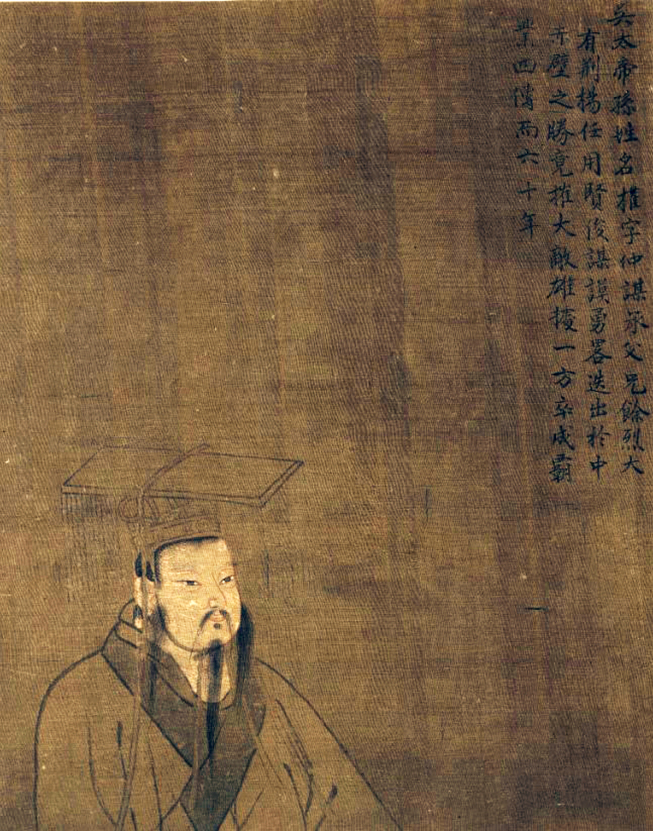 吴太帝孫姓名權字仲謀承父兄餘烈大
有荆揚任用賢俊謀謨勇畧迭出於中
赤壁之勝竟摧大敵雄據一方卒成霸
業四傳而六十年